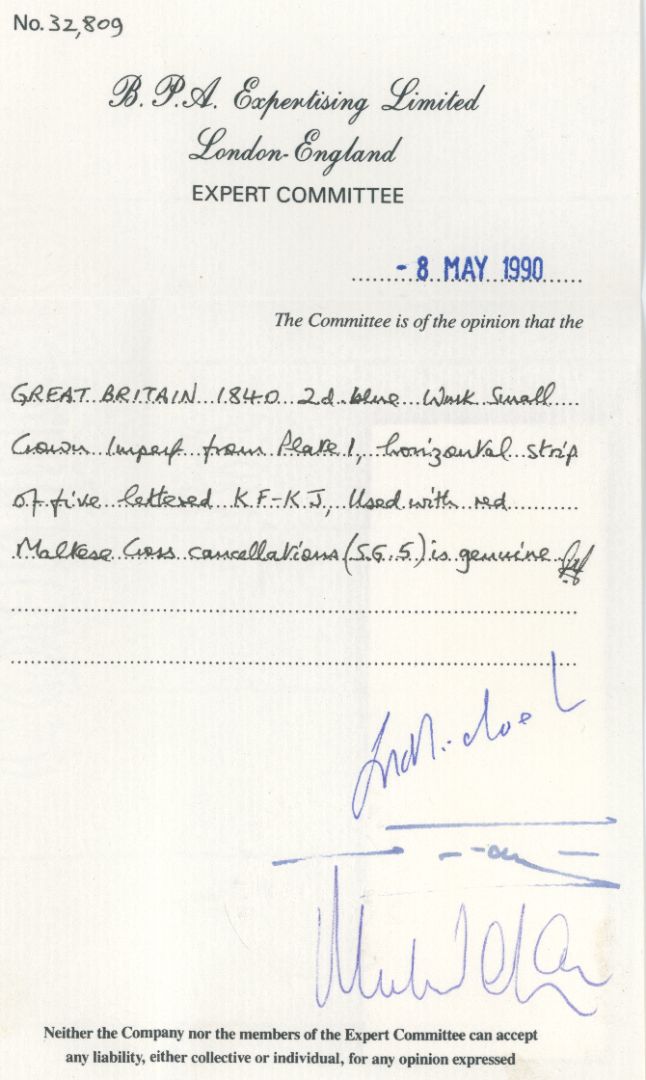 No. 32,809
B. P. A. Expertising Limited
London-England
EXPERT COMMITTEE
- 8 MAY 1990
The Committee is of the opinion that the
GREAT BRITAIN 1840 2d. blue Wmk Small
Crown Imperf from Plate 1, horizontal strip
of five lettered KF-KJ, Used with red
Maltese Cross cancellations (S.G.5) is genuine
Neither the Company nor the members of the Expert Committee can accept
any liability, either collective or individual, for any opinion expressed